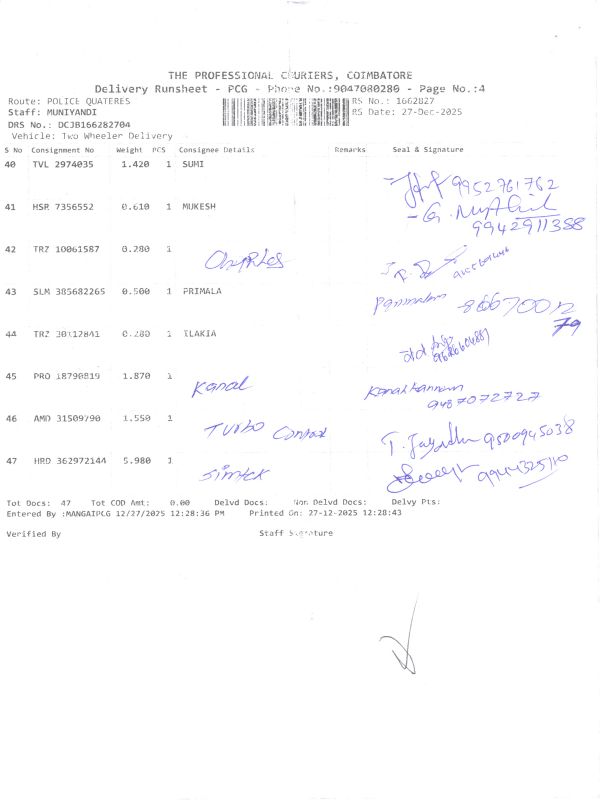 THE PROFESSIONAL COURIERS, COIMBATORE
Delivery Runsheet - PCG - Phone No.:9047080280 - Page No.:4
Route: POLICE QUATERES RS No.: 1662827
Staff: MUNIYANDI RS Date: 27-Dec-2025
DRS No.: DCJB166282704
Vehicle: Two Wheeler Delivery
S No Consignment No Weight PCS Consignee Details Remarks Seal & Signature
40 TVL 2974035 1.420 1 SUMI
9952761762
41 HSR 7356552 0.610 1 MUKESH
9942911388
42 TRZ 10061587 0.280 1
43 SLM 385682265 0.500 1 PRIMALA
79
44 TRZ 30112841 0.280 1 ILAKIA
45 PRO 18790819 1.870 1
Kanal
9487072727
46 AMD 31509790 1.550 1
Turbo
9500945038
47 HRD 362972144 5.980 1
Simtek
Tot Docs: 47 Tot COD Amt: 0.00 Delvd Docs: Non Delvd Docs: Delvy Pts:
Entered By :MANGAIPCG 12/27/2025 12:28:36 PM Printed On: 27-12-2025 12:28:43
Verified By Staff Signature